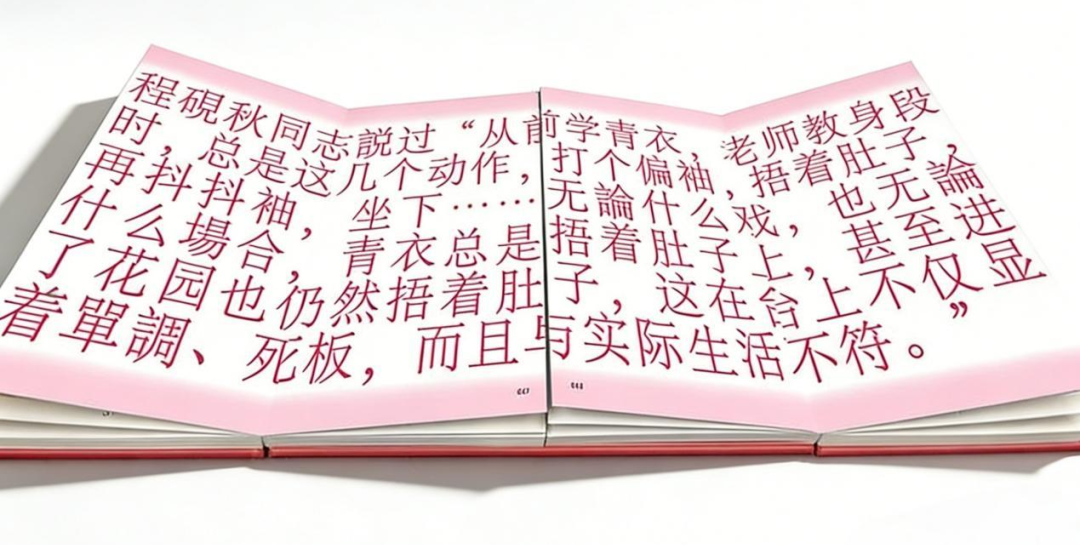 程硯秋同志説过“从前学青衣，老师教身段
时，总是这几个动作，打个偏袖，捂着肚子，
再抖抖袖，坐下……无論什么戏，也无論
什么場合，青衣总是捂着肚子上，甚至进
了花园也仍然捂着肚子，这在台上不仅显
着單調、死板，而且与实际生活不符。”